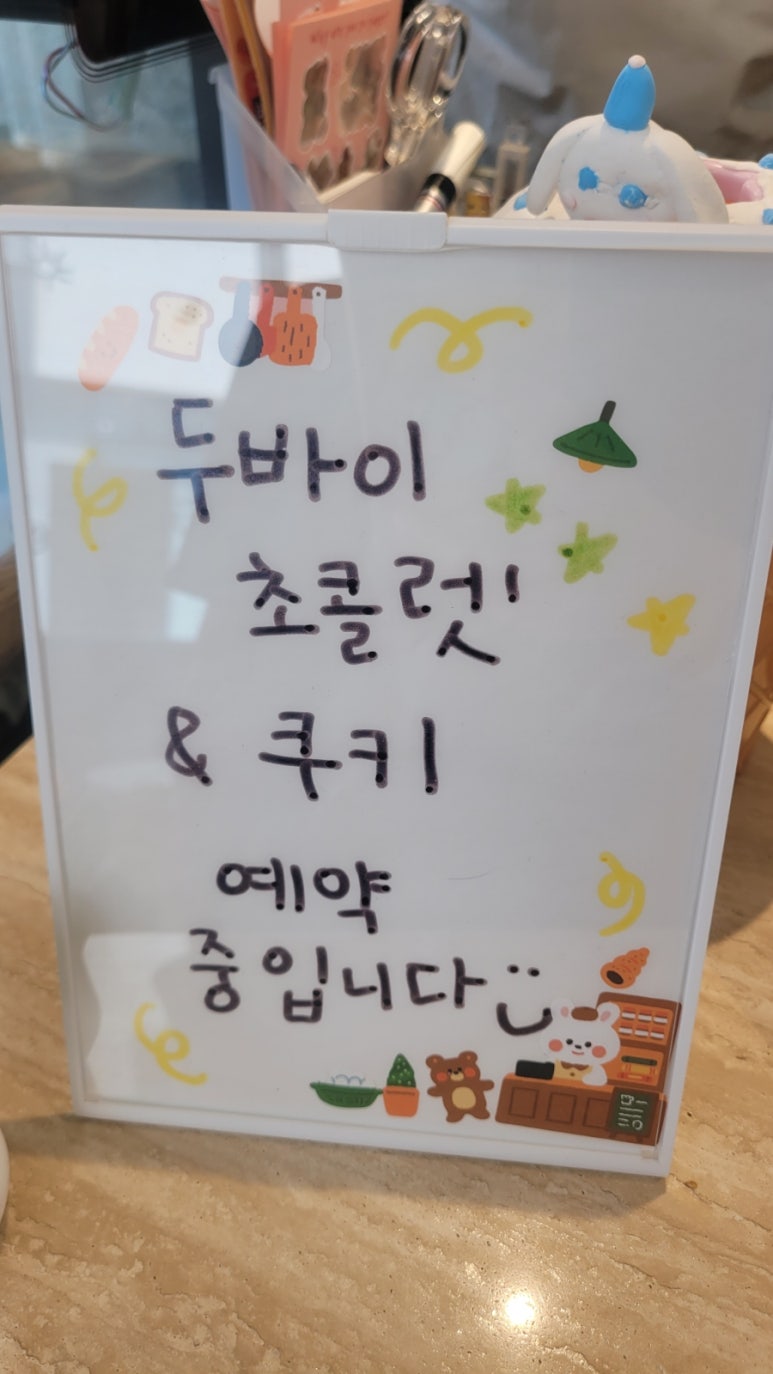 두바이
초콜렛
& 쿠키
예약
중입니다